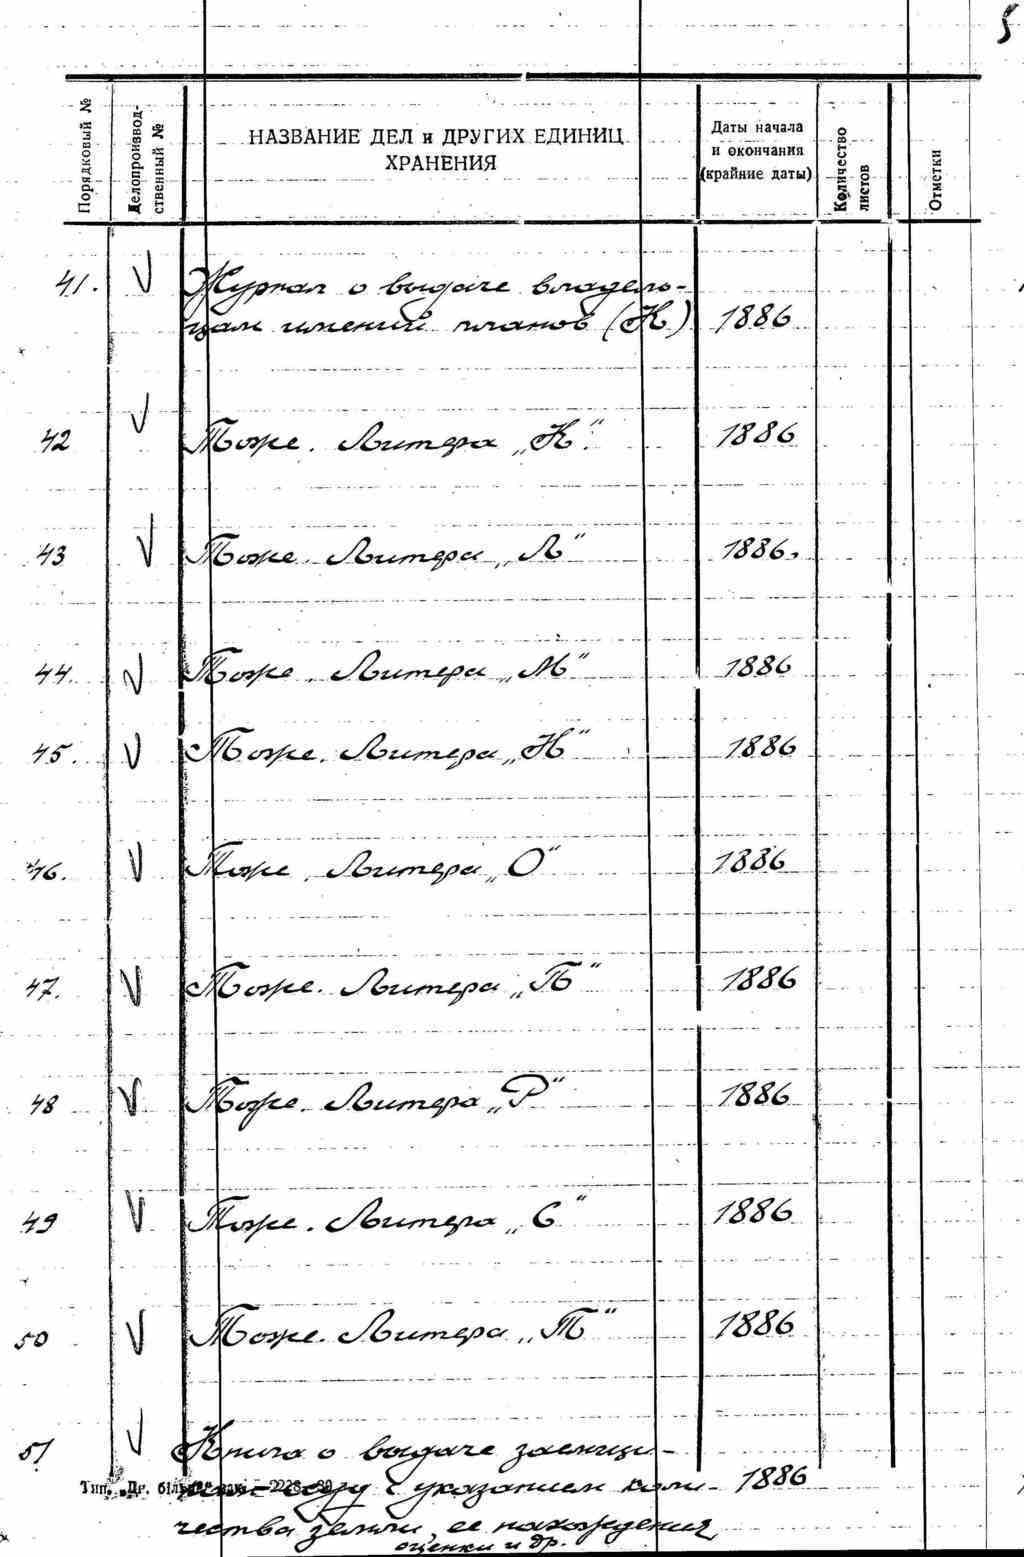 5
Порядковый №
Делопроизвод-
ственный №
НАЗВАНИЕ ДЕЛ и ДРУГИХ ЕДИНИЦ
ХРАНЕНИЯ
Даты начала
и окончания
(крайние даты)
Количество
листов
Отметки
41. V Журнал о выдаче владель-
цам имений планов (К) 1886
42 V Тоже. Литера „К". 1886
43 V Тоже. Литера „Л" 1886.
44. V Тоже. Литера „М" 1886
45. V Тоже. Литера „Н" 1886
46. V Тоже. Литера „О" 1886
47. V Тоже. Литера „П" 1886
48 V Тоже. Литера „Р" 1886
49 V Тоже. Литера „С" 1886
50 V Тоже. Литера „Т" 1886
51 V Книга о выдаче заемщи-
ссуд с указанием коли- 1886
чества земли, ее нахождения
оценки и др.
Тип.